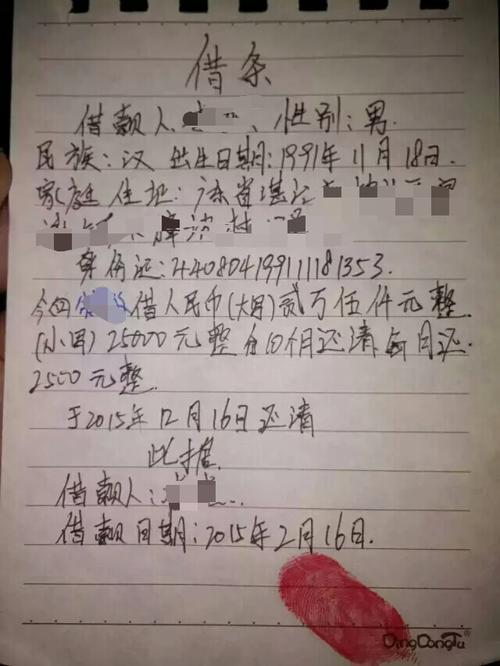 借条
借款人 、性别:男.
民族:汉 出生日期:1991年11月18日.
家庭住址:广东省湛江
村
身份证:440804199111181353.
今向 借人民币(大写)贰万伍仟元整
(小写)25000元整 分10个月还清,每月还
2500元整.
于2015年12月16日还清
此据.
借款人:
借款日期:2015年2月16日.
DingDongTu®